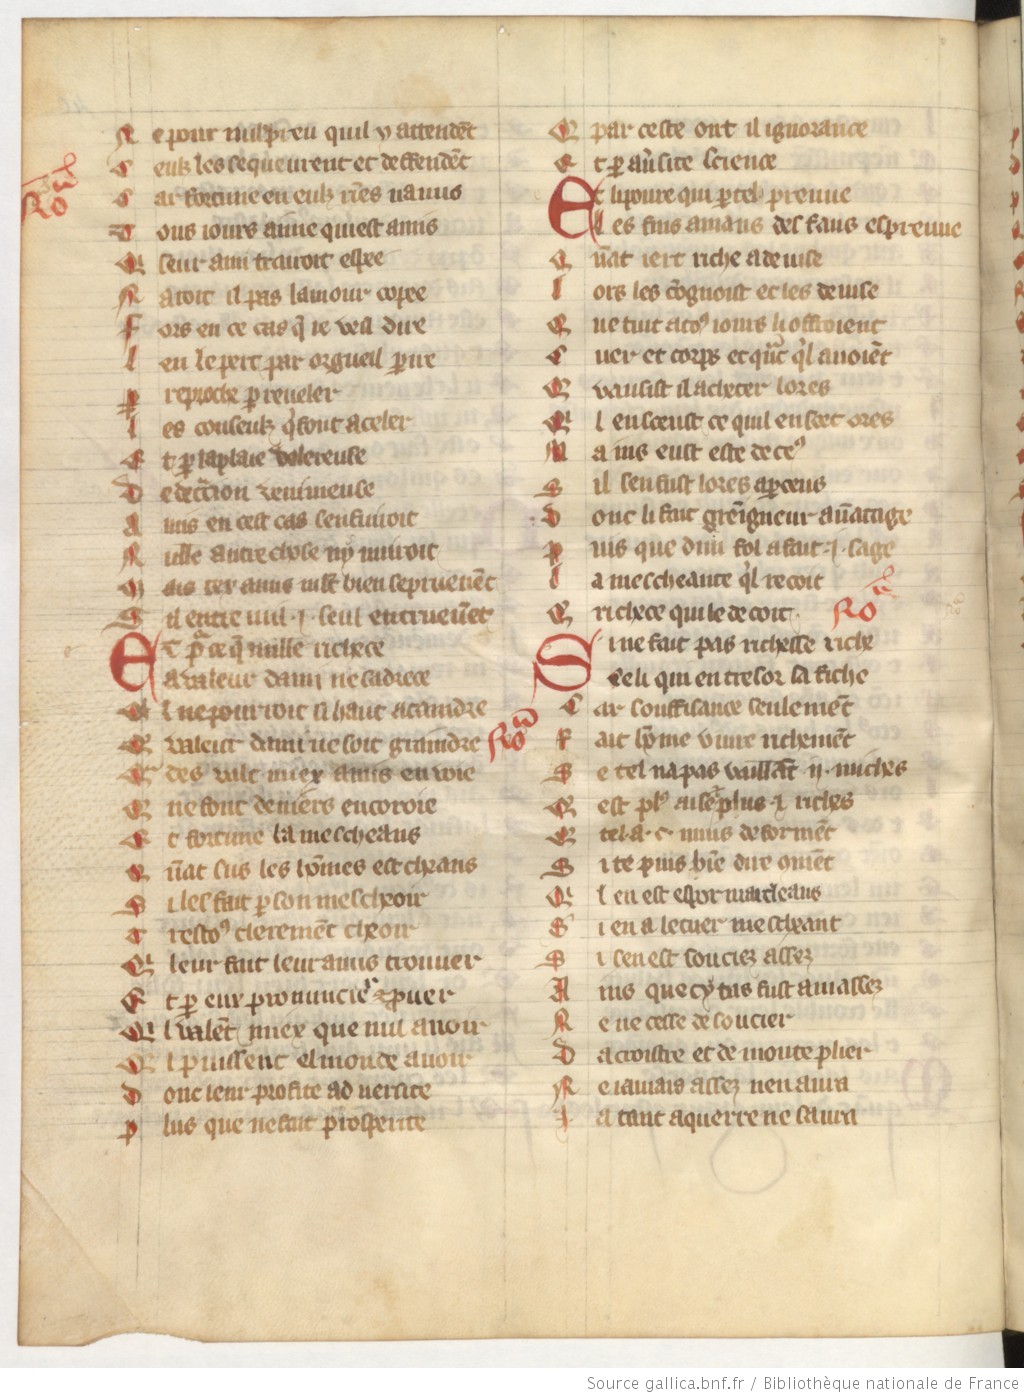 N e pour nul preu quil y attendēt
C eulz les sequeurent et deffendēt
C ar fortune en eulz riēs na mis
T ous iours aime qui est amis
Q i seur ami trairoit espee
N auroit il pas lamour copee
F ors en ce cas q̄ ie veil dire
l en le pert par orgueil p ire
p reproche p reueler
l es conseulz q̄ font a celer
E t p la plaie dolereuse
D e detc̄ion venimeuse
A mis en cest cas sen fuiroit
N ulle autre chose ny nuiroit
M ais tex amis mlt bien se prueuent
S il entre mil .j. seul en trueuēt
E T p̄ ce q̄ nulle richece
a valeur dami ne sadrece
Q l ne pourroit si haut ataindre
Q valeur dami ne soit graindre
Q des valt miex amis en voie
Q ne font deniers en coroie
E t fortune la mescheans
Q ūat sus les hōmes est cheans
S i les fait p son mescheoir
T restoꝰ clerement cheoir
Q i leur fait leur amis trouuer
E t p eux pronuncier prouer
Q il valēt miex que nul auoir
Q l puissent el monde auoir
D ont leur profite aduersite
p lus que ne fait prosperite
Q par ceste ont il ignorance
E t p aūsite science
E t li poure qui p tel preuue
l es fins amans des faus espreuue
Q ūat iert riche a deuise
l ors les cōgnoist et les deuise
Q ue tuit a toꝰ iours li offroient
C uer et corps et q̄nt q̄l auoiēt
Q vausist il acheter lores
Q il en sceust ce quil en scet ores
M ains eust este deceꝰ
S il sen fust lores aperceus
D ont li fait greīgneur auātage
p uis que dun fol a fait .j. sage
l a mescheance q̄l recoit
Q richece qui le decoit
Ro
S i ne fait pas richesse riche
Celi qui en tresor la fiche
C ar souffisance seulemēt
F ait hōme viure richemēt
S e tel na pas vaillāt .ij. miches
Q est pl9 aise plus .j. riches
Q tel a .c. muis de formēt
S i te puis biē dire cōmēt
Q l en est espoir marcheans
S i en a le cuer meschant
S i sen est souciez assez
A ins que cy tas fust amassez
N e ne cesse de soucier
D acroistre et de monteplier
N e iamais assez nen aura
J a tant aquerre ne saura